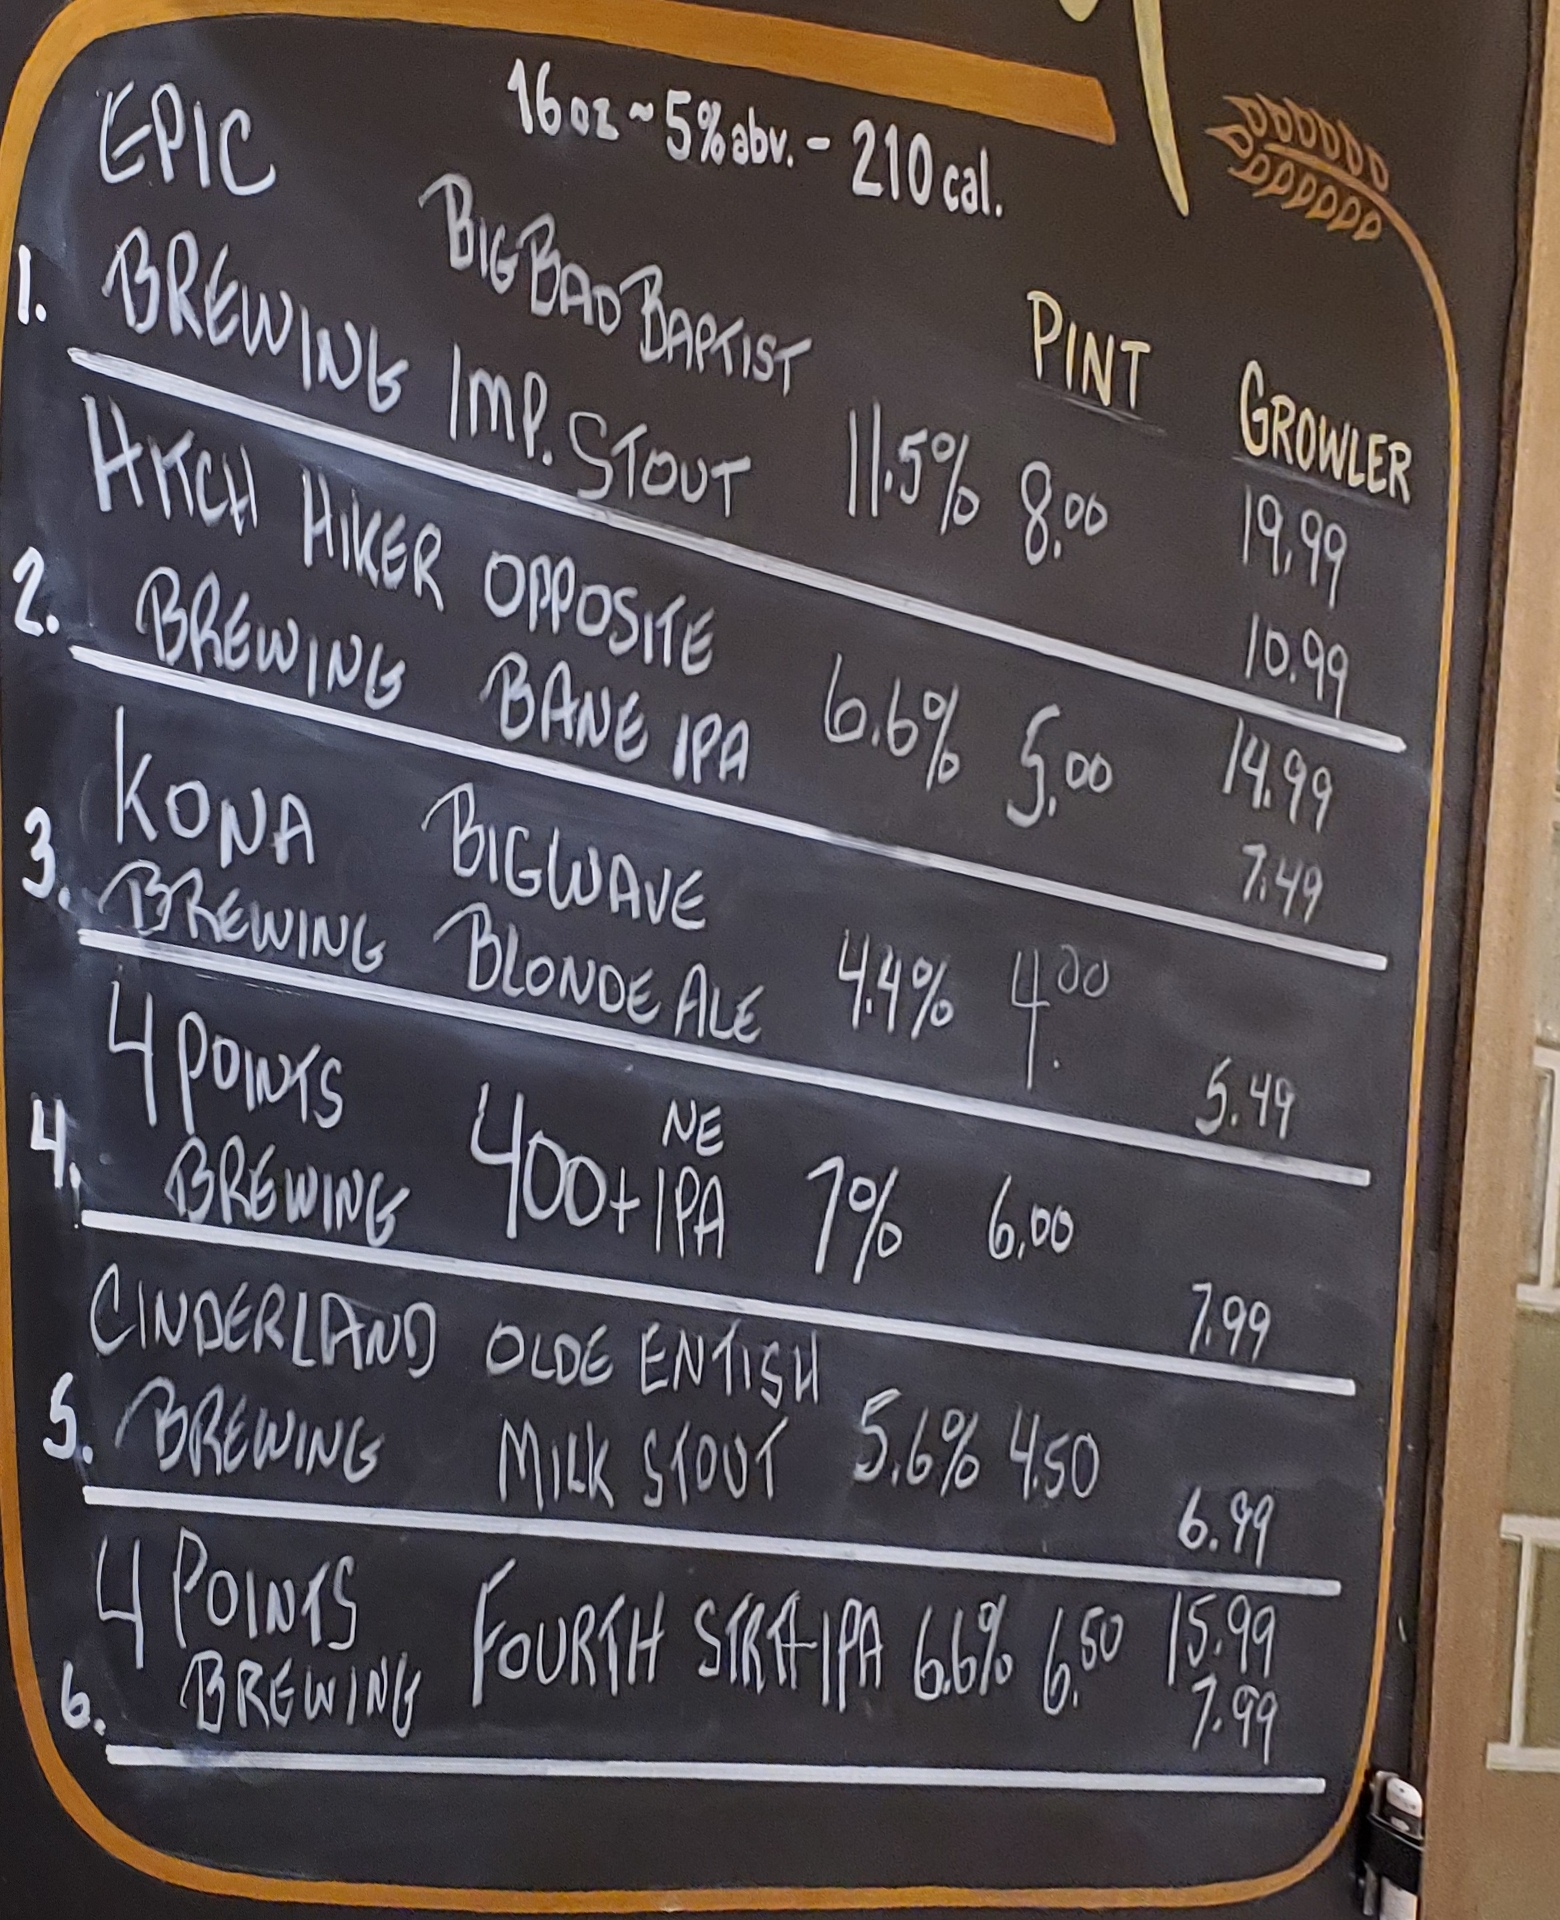 16oz ~ 5% abv. - 210 cal.
PINT GROWLER
EPIC BIG BAD BAPTIST
1. BREWING IMP. STOUT 11.5% 8.00 19.99
10.99
HITCH HIKER OPPOSITE
2. BREWING BANE IPA 6.6% 5.00 14.99
7.49
KONA BIG WAVE
3. BREWING BLONDE ALE 4.4% 4.00
5.49
4 POINTS NE
4. BREWING 400+ IPA 7% 6.00
7.99
CINDERLAND OLDE ENTISH
5. BREWING MILK STOUT 5.6% 4.50
6.99
4 POINTS FOURTH STRATA IPA 6.6% 6.50 15.99
6. BREWING 7.99